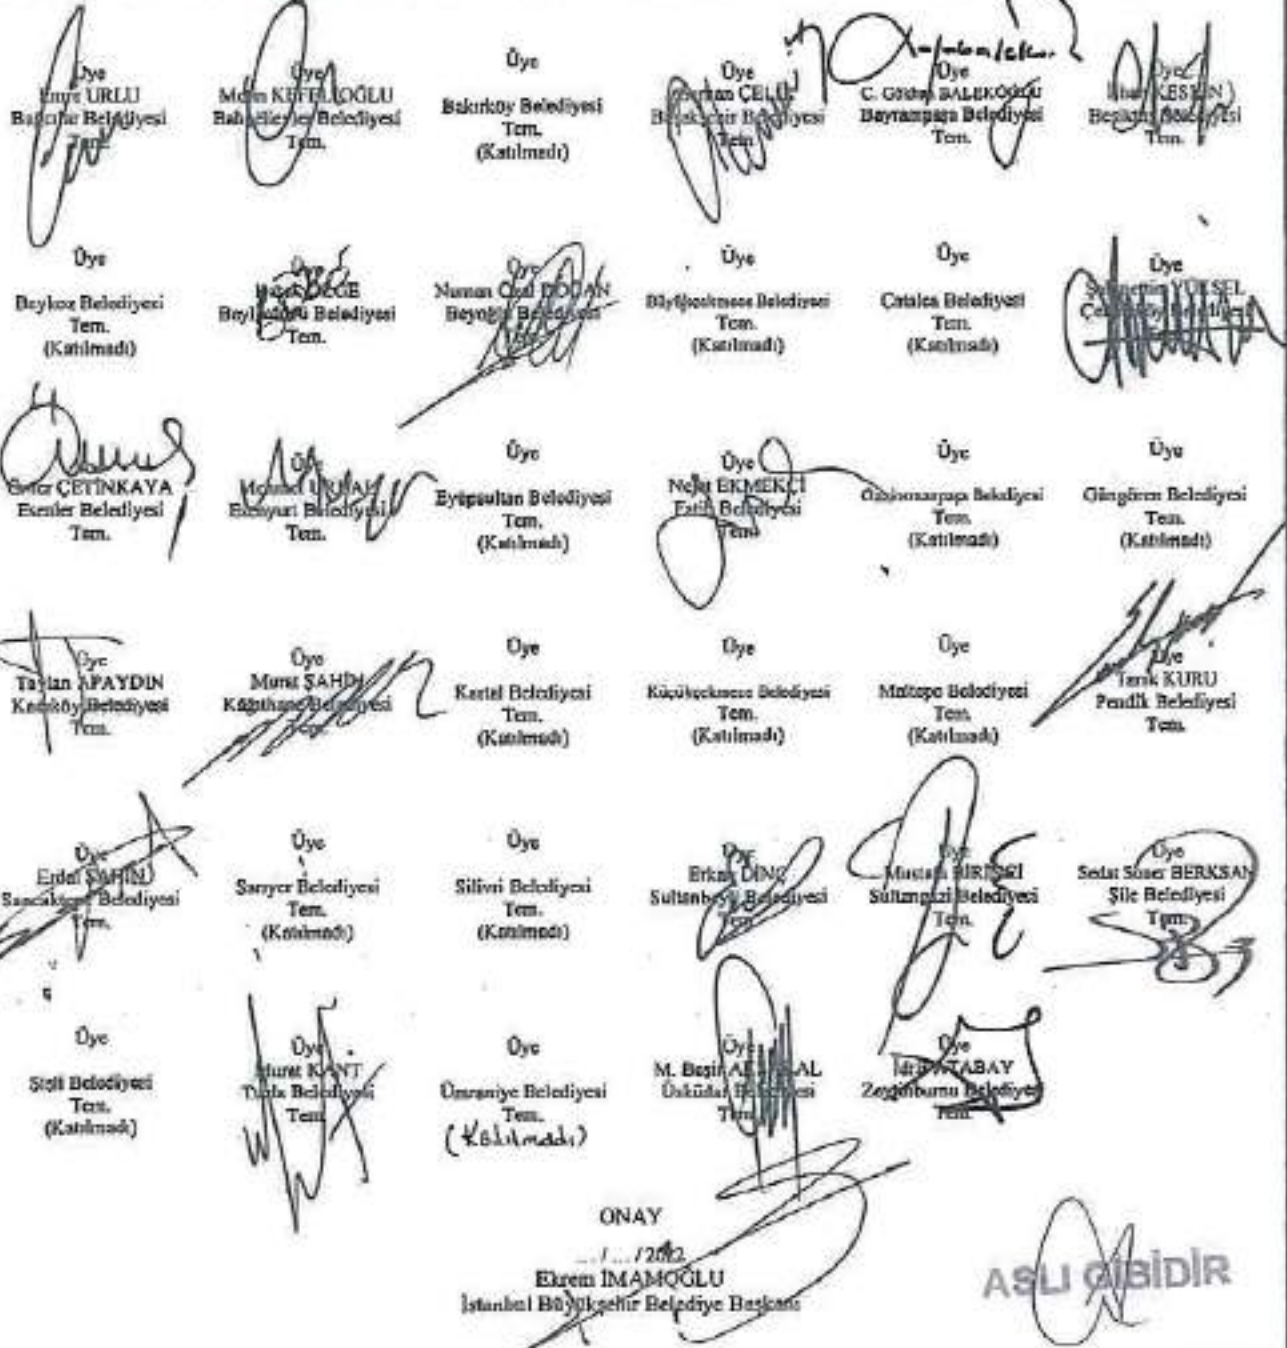 Üye
Emre URLU
Bağcılar Belediyesi
Tem.
Üye
Metin
Bahçelievler Belediyesi
Tem.
Üye
Bakırköy Belediyesi
Tem.
(Katılmadı)
Üye
Başakşehir Belediyesi
Tem.
Üye
C. Gökhan BALEKOĞLU
Bayrampaşa Belediyesi
Tem.
Üye
İlhan KESKİN
Beşiktaş Belediyesi
Tem.
Üye
Beykoz Belediyesi
Tem.
(Katılmadı)
Üye
Beylikdüzü Belediyesi
Tem.
Üye
Numan DOĞAN
Beyoğlu Belediyesi
Üye
Büyükçekmece Belediyesi
Tem.
(Katılmadı)
Üye
Çatalca Belediyesi
Tem.
(Katılmadı)
Üye
YÜKSEL
Üye
ÇETİNKAYA
Esenler Belediyesi
Tem.
Üye
Mehmet
Esenyurt Belediyesi
Tem.
Üye
Eyüpsultan Belediyesi
Tem.
(Katılmadı)
Üye
Nejat EKMEKÇİ
Fatih Belediyesi
Tem.
Üye
Gaziosmanpaşa Belediyesi
Tem.
(Katılmadı)
Üye
Güngören Belediyesi
Tem.
(Katılmadı)
Üye
Taylan APAYDIN
Kadıköy Belediyesi
Tem.
Üye
Murat ŞAHİN
Kağıthane Belediyesi
Üye
Kartal Belediyesi
Tem.
(Katılmadı)
Üye
Küçükçekmece Belediyesi
Tem.
(Katılmadı)
Üye
Maltepe Belediyesi
Tem.
(Katılmadı)
Üye
Tarık KURU
Pendik Belediyesi
Tem.
Üye
Erdal ŞAHİN
Sancaktepe Belediyesi
Tem.
Üye
Sarıyer Belediyesi
Tem.
(Katılmadı)
Üye
Silivri Belediyesi
Tem.
(Katılmadı)
Üye
Erkan DİNÇ
Sultanbeyli Belediyesi
Tem.
Üye
Mustafa BİRİNCİ
Sultangazi Belediyesi
Tem.
Üye
Sedat Soner BERKSAN
Şile Belediyesi
Tem.
Üye
Şişli Belediyesi
Tem.
(Katılmadı)
Üye
Murat KANT
Tuzla Belediyesi
Tem.
Üye
Ümraniye Belediyesi
Tem.
(Katılmadı)
Üye
M. Beşir
Üsküdar Belediyesi
Tem.
Üye
İdris ATABAY
Zeytinburnu Belediyesi
Tem.
ONAY
.... / .... / 2022
Ekrem İMAMOĞLU
İstanbul Büyükşehir Belediye Başkanı
ASLI GİBİDİR